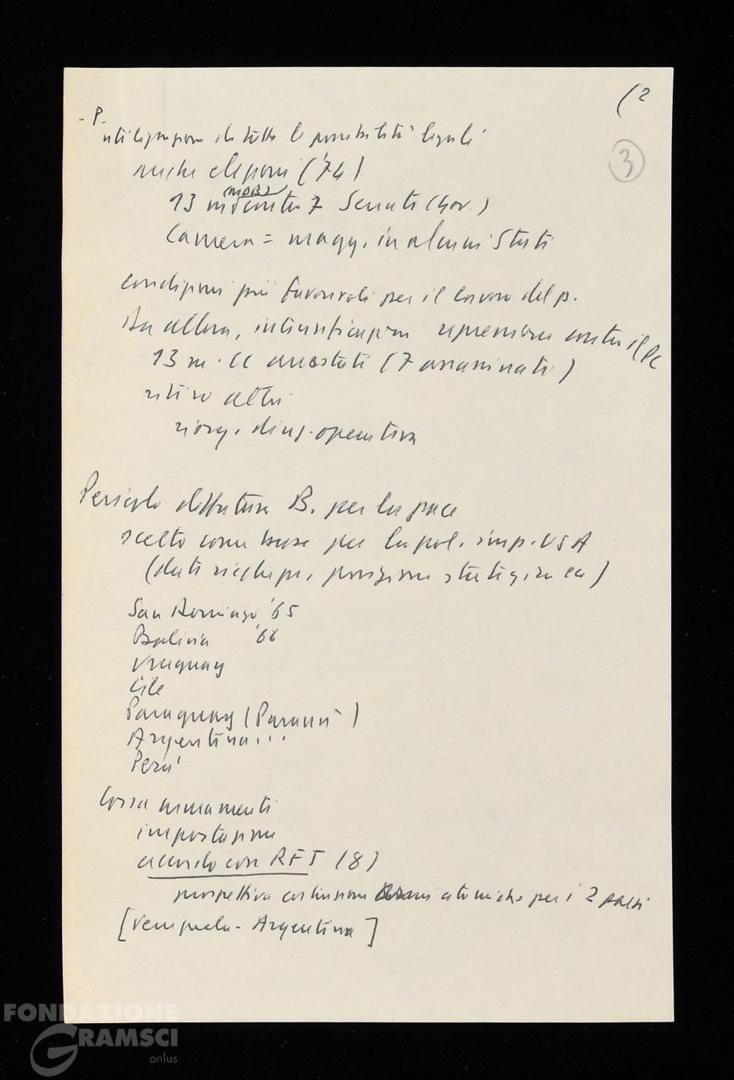 (2
3
- P.
utilizzazione di tutte le possibilità legali
anche elezioni ('74)
MDB
13 m contro 7 Senato (Gov.)
Camera = magg. in alcuni Stati
condizioni più favorevoli per il lavoro del p.
Da allora, intensificazione repressione contro il PC
13 m. CC arrestati (7 assassinati)
ritiro altri
riorg. direz. operativa
Pericolo dittatura B. per la pace
scelto come base per la pol. imp. USA
(dati ricchezze, posizione strategica ecc)
San Domingo '65
Bolivia '66
Uruguay
Cile
Paraguay (Paranà)
Argentina...
Perù
Corsa armamenti
importazione
accordo con RFT (8)
prospettiva costruzione armi atomiche per i 2 paesi
[Venezuela - Argentina]
FONDAZIONE
GRAMSCI
onlus